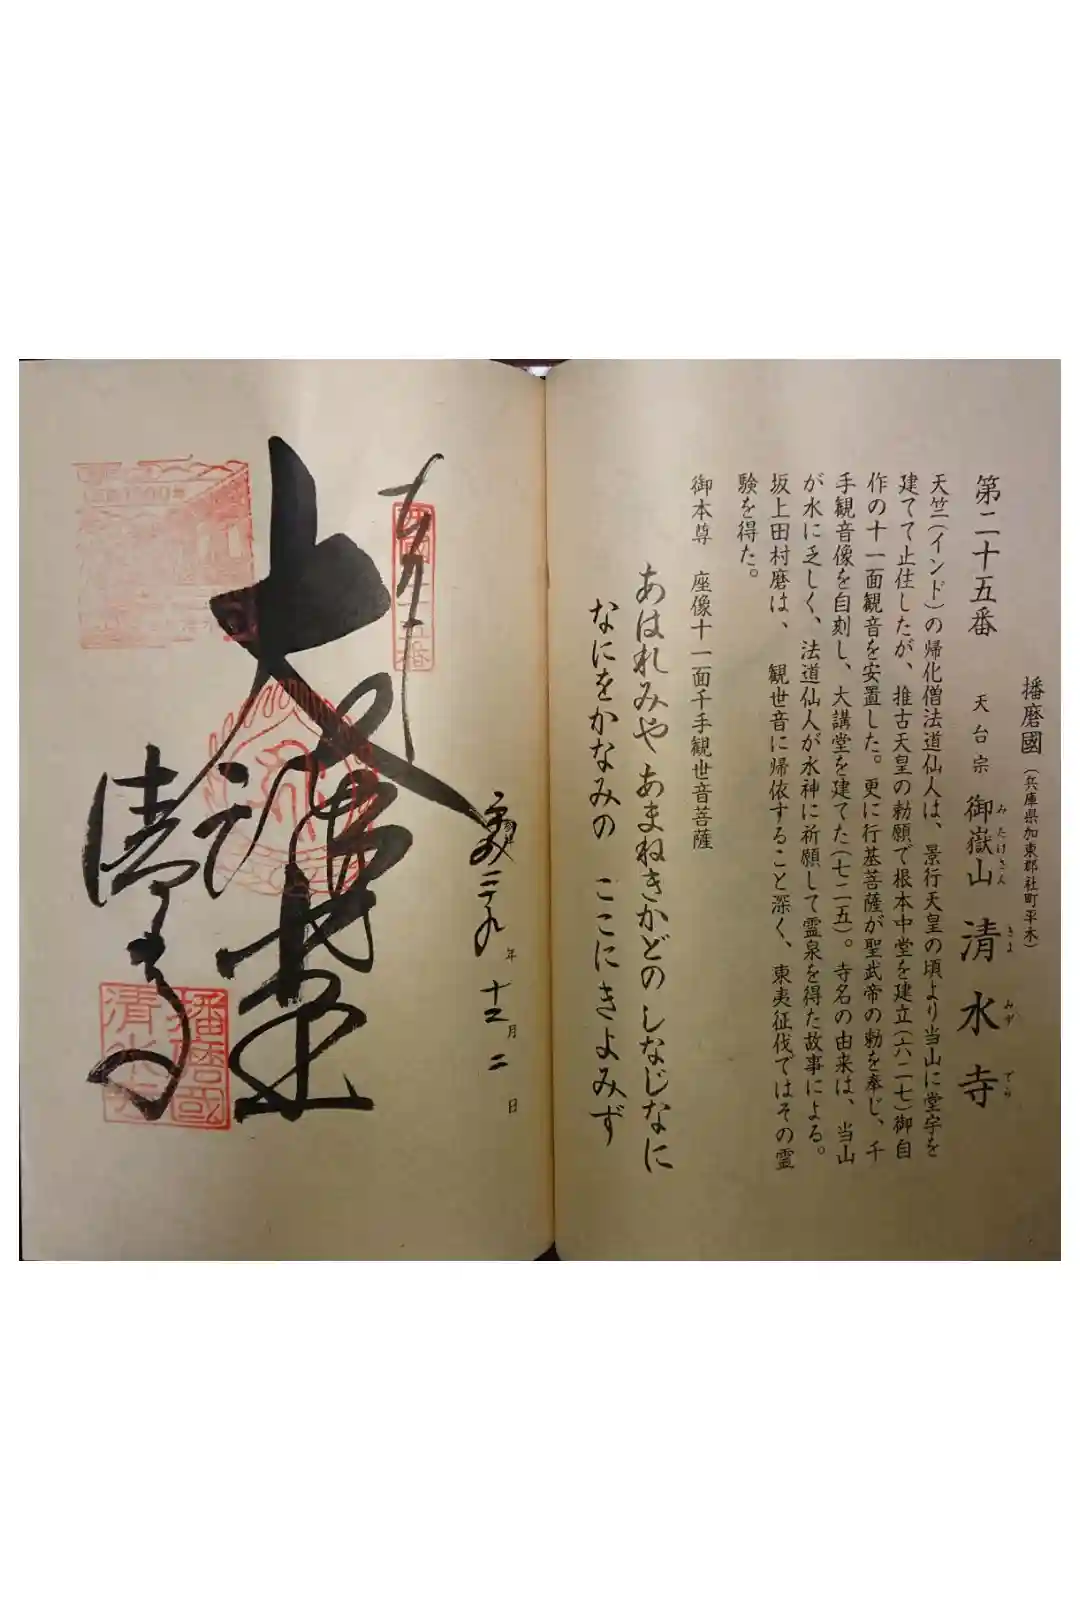 播磨國（兵庫県加東郡社町平木）
第二十五番 天台宗 御嶽山 清水寺
みたけさん きよ みず でら
天竺（インド）の帰化僧法道仙人は、景行天皇の頃より当山に堂宇を
建てて止住したが、推古天皇の勅願で根本中堂を建立（六二七）御自
作の十一面観音を安置した。更に行基菩薩が聖武帝の勅を奉じ、千
手観音像を自刻し、大講堂を建てた（七二五）。寺名の由来は、当山
が水に乏しく、法道仙人が水神に祈願して霊泉を得た故事による。
坂上田村磨は、 観世音に帰依すること深く、東夷征伐ではその霊
験を得た。
御本尊 座像十一面千手観世音菩薩
あはれみや あまねきかどの しなじなに
なにをかなみの ここにきよみず
平成二十九年 十二月 二日
奉拝
西國二十五番
大講堂
清水寺
播磨國
清水寺